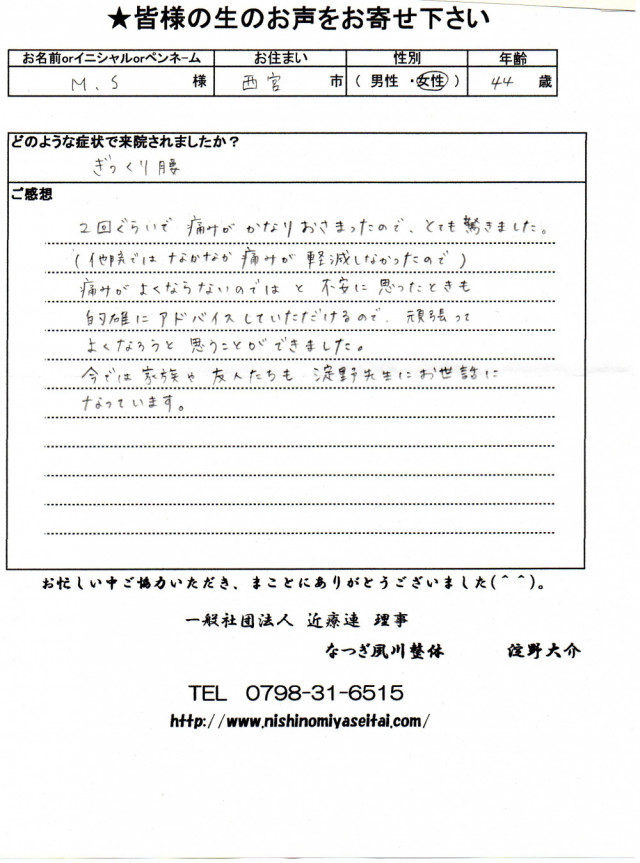 ★皆様の生のお声をお寄せ下さい
お名前orイニシャルorペンネーム お住まい 性別 年齢
M.S 様 西宮 市 (男性・女性) 44 歳
どのような症状で来院されましたか？
ぎっくり腰
ご感想
2回ぐらいで 痛みが かなりおさまったので、とても驚きました。
(他院では なかなか 痛みが 軽減しなかったので)
痛みが よくならないのでは と 不安に 思ったときも
的確に アドバイス していただけるので、頑張って
よくなろうと 思うことができました。
今では 家族や 友人たちも 淀野先生に お世話に
なっています。
お忙しい中ご協力いただき、まことにありがとうございました(^^)。
一般社団法人 近療連 理事
なつぎ夙川整体 淀野大介
TEL 0798-31-6515
http://www.nishinomiyaseitai.com/